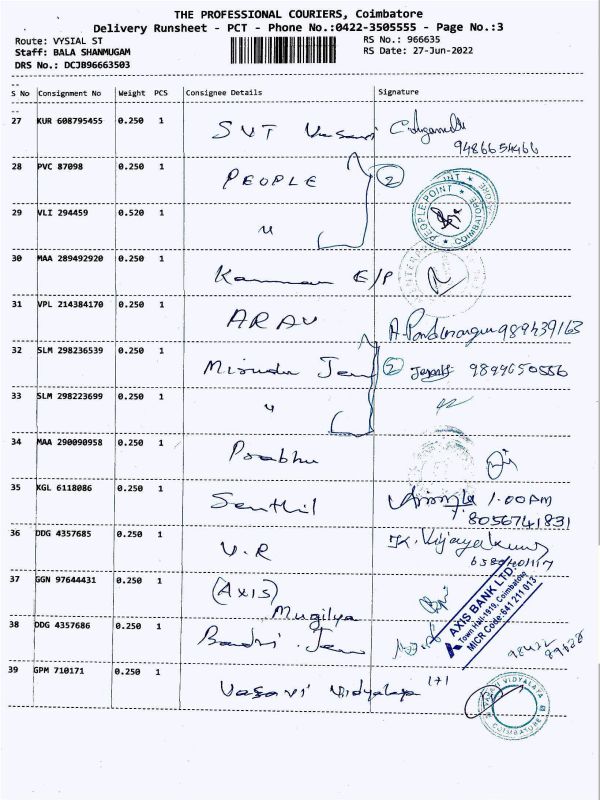 THE PROFESSIONAL COURIERS, Coimbatore
Delivery Runsheet - PCT - Phone No.:0422-3505555 - Page No.:3
Route: VYSIAL ST
RS No.: 966635
Staff: BALA SHANMUGAM
RS Date: 27-Jun-2022
DRS No.: DCJB96663503
S No Consignment No Weight PCS Consignee Details Signature
27 KUR 608795455 0.250 1 SVT Vasavi
9486654466
28 PVC 87098 0.250 1 PEOPLE 2
PEOPLE POINT COIMBATORE
29 VLI 294459 0.520 1 "
30 MAA 289492920 0.250 1 E/P
31 VPL 214384170 0.250 1 ARAV
32 SLM 298236539 0.250 1 2 9894650556
33 SLM 298223699 0.250 1 "
34 MAA 290090958 0.250 1 Prabhu
35 KGL 6118086 0.250 1 Senthil 1.00AM
8056741831
36 DDG 4357685 0.250 1 V.R K. Vijayakumar
37 GGN 97644431 0.250 1 (AXIS)
Mugilya
AXIS BANK LTD.
Town Hall-1919, Coimbatore
MICR Code:641 211 013
38 DDG 4357686 0.250 1
39 GPM 710171 0.250 1 Vasavi Vidyalaya
VIDYALAYA COIMBATORE